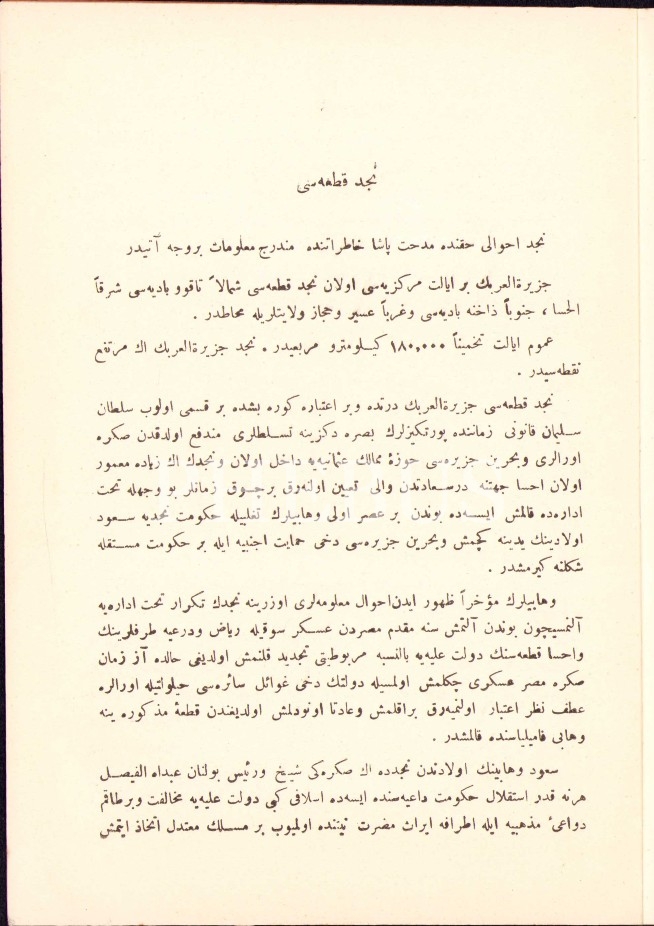 نجد قطعه‌سی
نجد احوالی حقنده مدحت پاشا خاطراتنده مندرج معلومات بروجه آتیدر
جزیرةالعربك بر ایالت مركزیه‌سی اولان نجد قطعه‌سی شمالاً تاقوو بادیه‌سی شرقاً
الحسا، جنوباً ذاخنه بادیه‌سی وغرباً عسیر وحجاز ولایتلریله محاطدر.
عموم ایالت تخمیناً ١٨٠,٠٠٠ كیلومترو مربعیدر. نجد جزیرةالعربك اك مرتفع
نقطه‌سیدر.
نجد قطعه‌سی جزیرةالعربك درتده وبر اعتباره كوره بشده بر قسمی اولوب سلطان
سلیمان قانونی زماننده پورتكیزلرك بصره دكزینه تسلطلری مندفع اولدقدن صكره
اورالری وبحرین جزیره‌سی حوزهٔ ممالك عثمانیه‌یه داخل اولان ونجدك اك زیاده معمور
اولان احسا جهتنه درسعادتدن والی تعیین اولنه‌رق برچوق زمانلر بو وجهله تحت
اداره‌ده قالمش ایسه‌ده بوندن بر عصر اولی وهابیلرك تغلبیله حكومت نجدیه سعود
اولادینك یدینه كچمش وبحرین جزیره‌سی دخی حمایت اجنبیه ایله بر حكومت مستقله
شكلنه كیرمشدر.
وهابیلرك مؤخراً ظهور ایدن احوال معلومه‌لری اوزرینه نجدك تكرار تحت اداره‌یه
آلنمسیچون بوندن آلتمش سنه مقدم مصردن عسكر سوقیله ریاض ودرعیه طرفلرینك
واحسا قطعه‌سنك دولت علیه‌یه بالنسبه مربوطیتی تجدید قلنمش اولدیغی حالده آز زمان
صكره مصر عسكری چكلمش اولمسیله دولتك دخی غوائل سائره‌سی حیلولتیله اورالره
عطف نظر اعتبار اولنمیه‌رق براقلمش وعادتا اونودلمش اولدیغندن قطعهٔ مذكوره ینه
وهابی فامیلیاسنده قالمشدر.
سعود وهابینك اولادندن نجدده اك صكره‌كی شیخ ورئیس بولنان عبداه الفیصل
هرنه قدر استقلال حكومت داعیه‌سنده ایسه‌ده اسلافی كبی دولت علیه‌یه مخالفت وبرطاقم
دواعیٔ مذهبیه ایله اطرافه ایراث مضرت نیتنده اولمیوب بر مسلك معتدل اتخاذ ایتمش